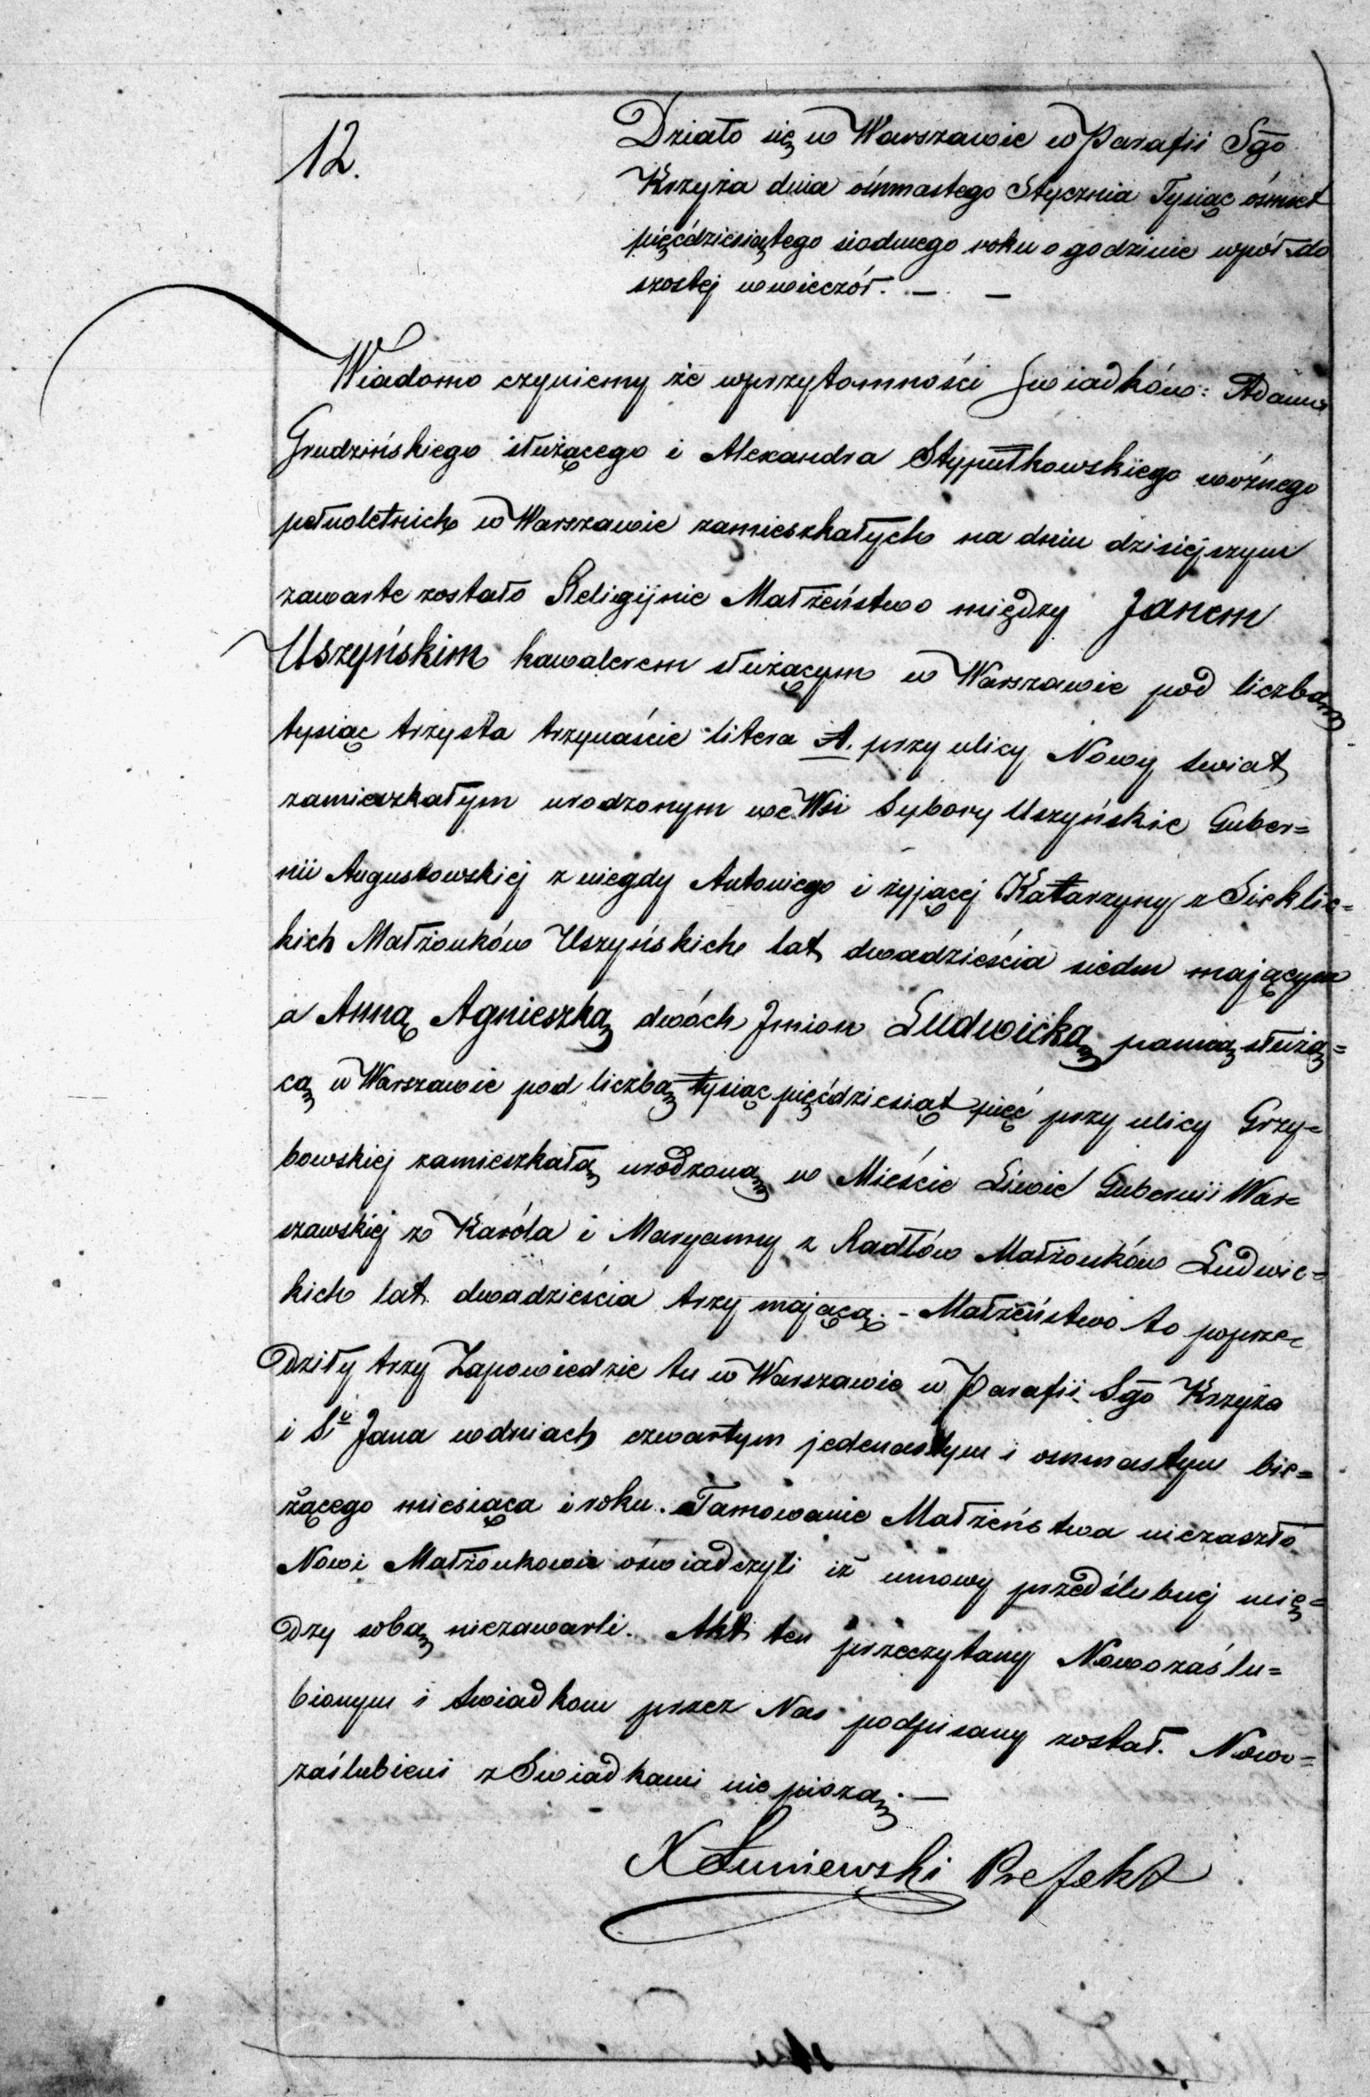 12.
Działo się w Warszawie w Parafii Sgo
Krzyża dnia ośmnastego Stycznia Tysiąc ośmset
pięćdziesiątego siodmego roku o godzinie wpół do
szostej wwieczór. — —
Wiadomo czyniemy że wprzytomności Swiadków: Adama
Grudzińskiego służącego i Alexandra Stypułkowskiego woźnego
pełnoletnich w Warszawie zamieszkałych na dniu dzisiejszym
zawarte zostało Religijnie Małżeństwo między Janem
Uszyńskim kawalerem służącym w Warszawie pod liczbą
tysiąc trzysta trzynaście litera A. przy ulicy Nowy swiat
zamieszkałym urodzonym we Wsi Sybory Uszyńskie Guber=
nii Augustowskiej z niegdy Antoniego i żyjącej Katarzyny z Sieklic=
kich Małżonków Uszyńskich lat dwadzieścia siedm mającym
a Anną Agnieszką dwóch Jmion Ludwicką panną służą=
cą w Warszawie pod liczbą tysiąc pięćdziesiąt pięć przy ulicy Grzy=
bowskiej zamieszkałą urodzoną w Mieście Liwie Gubernii War=
szawskiej z Karóla i Maryanny z Radłów Małżonków Ludwic=
kich lat dwadzieścia trzy mającą. – Małżeństwo to poprze=
dziły trzy Zapowiedzie tu w Warszawie w Parafii Sgo Krzyża
i Sgo Jana wdniach czwartym jedenastym i osmnastym bie=
żącego miesiąca i roku. Tamowanie Małżeństwa niezaszło
Nowi Małżonkowie oświadczyli iż umowy przedślubnej mię=
dzy sobą niezawarli. Akt ten przeczytany Nowozaślu=
bionym i Swiadkom przez Nas podpisany został. Nowo=
zaślubieni z Swiadkami nie piszą. —
X Łuniewski Prefekt